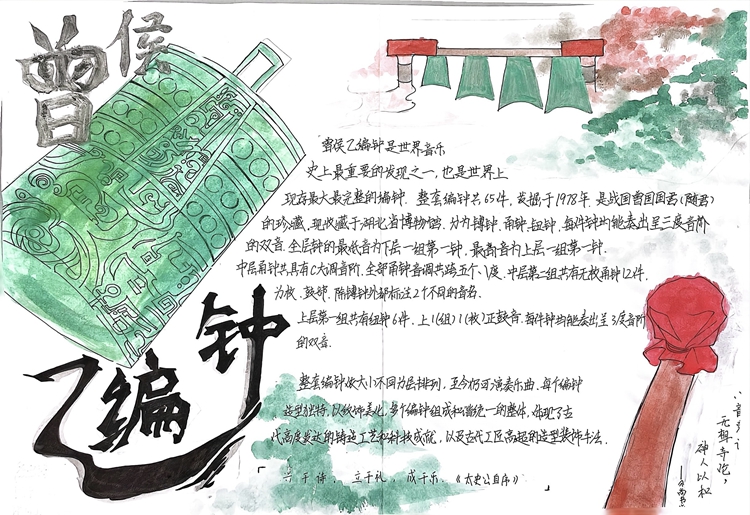 曾侯
乙编钟
曾侯乙编钟是世界音乐
史上最重要的发现之一,也是世界上
现存最大最完整的编钟。整套编钟共65件,发掘于1978年,是战国曾国国君(随君)
的珍藏,现收藏于湖北省博物馆。分为镈钟、甬钟、钮钟,每件钟均能奏出呈三度音阶
的双音。全层钟的最低音为下层一组第一钟,最高音为上层一组第一钟。
中层甬钟共具有C大调音阶,全部甬钟音调共跨五个八度。中层第二组共有无枚甬钟12件,
为枚、鼓部,除镈钟外都标注2个不同的音名。
上层第一组共有纽钟6件,上1(组)1(枚)正鼓音,每件钟均能奏出呈3度音阶
的双音。
整套编钟依大小不同为层排列,至今仍可演奏乐曲,每个编钟
造型独特,以纹饰美化,多个编钟组成和谐统一的整体,体现了古
代高度发达的铸造工艺和科技成就,以及古代工匠高超的造型装饰手法。
于诗,立于礼,成于乐。《太史公自序》
八音
无相夺伦,
神人以和